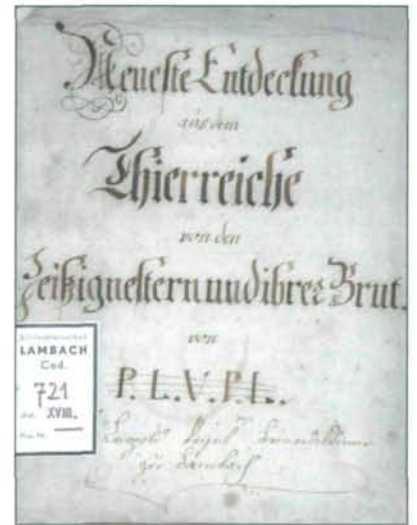 Neueste Entdeckung
aus dem
Thierreiche
von den
Zeißignestern und ihrer Brut.
von
P. L. V. P. L.
LAMBACH
Cod.
721
XVIII.
Leopold
zu Lambach